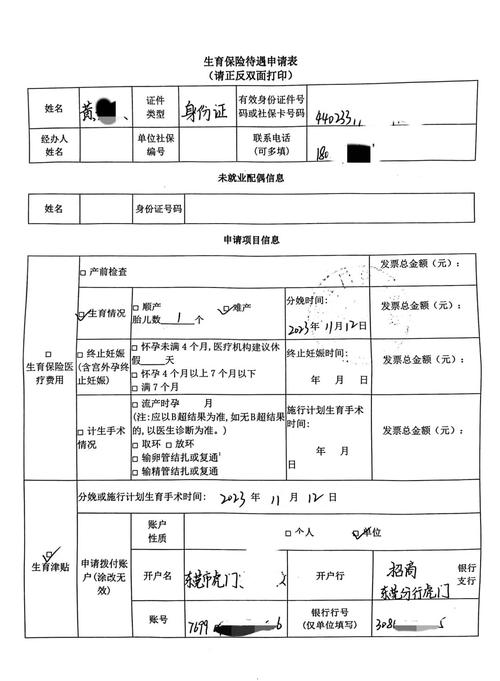 生育保险待遇申请表
（请正反双面打印）
姓名 黄 证件类型 身份证 有效身份证件号码或社保卡号码 440233
经办人姓名 单位社保编号 联系电话（可多填） 180
未就业配偶信息
姓名 身份证号码
申请项目信息
□ 生育保险医疗费用
□ 产前检查 发票总金额（元）：
☑ 生育情况 □ 顺产 ☑ 难产
胎儿数 1 个
分娩时间：
2023 年 11 月 12 日
发票总金额（元）：
□ 终止妊娠（含宫外孕终止妊娠）
□ 怀孕未满 4 个月，医疗机构建议休假____天
□ 怀孕 4 个月以上 7 个月以下
□ 满 7 个月
终止妊娠时间：
年 月 日
发票总金额（元）：
□ 计生手术情况
□ 流产时孕 月
（注：应以 B 超结果为准，如无 B 超结果的，以医生诊断为准。）
□ 取环 □ 放环
□ 输卵管结扎或复通
□ 输精管结扎或复通
施行计划生育手术时间：
年 月 日
发票总金额（元）：
☑ 生育津贴
分娩或施行计划生育手术时间： 2023 年 11 月 12 日
申请拨付账户（涂改无效）
账户性质 □ 个人 ☑ 单位
开户名 东莞市虎门 开户行 招商 银行
东莞分行虎门 支行
账号 7699 6 银行行号（仅单位填写） 308 5